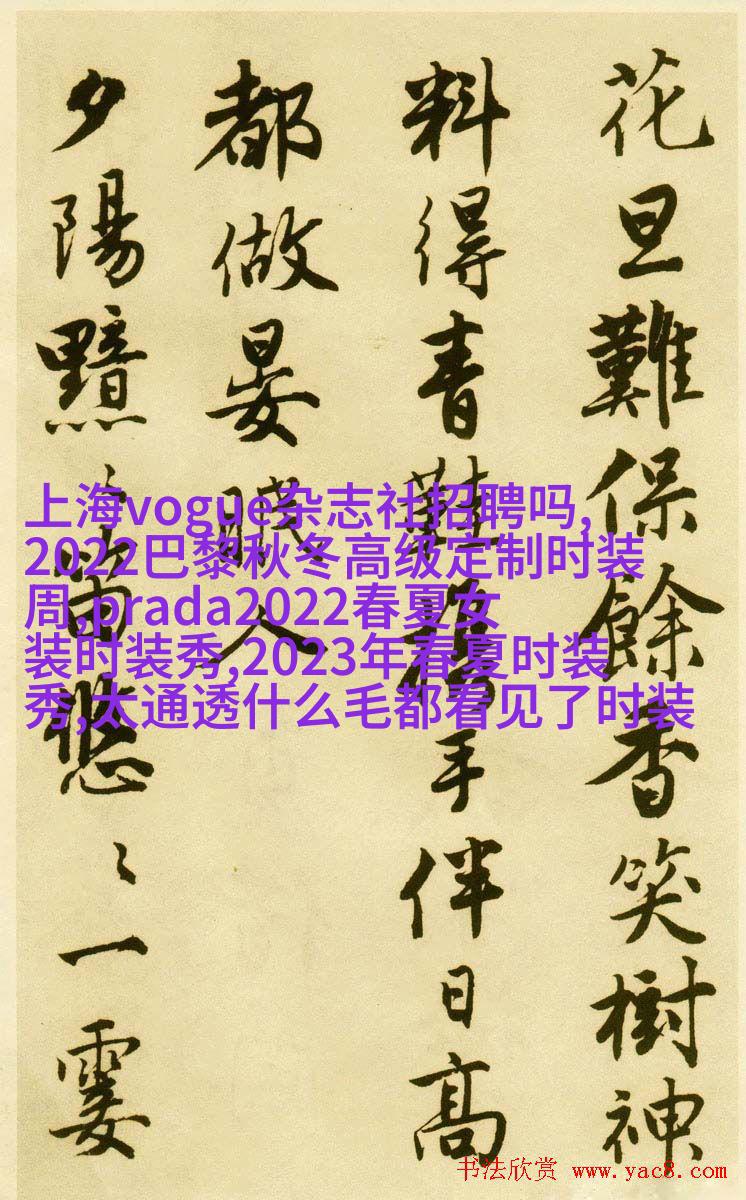 花旦難保餘香笑樹神
料得青鞵攜手伴日高
都做晏眠人
夕陽黯〻笛悠〻一霎
上海vogue杂志社招聘吗,
2022巴黎秋冬高级定制时装
周,prada2022春夏女
装时装秀,2023年春夏时装
秀,太通透什么毛都看见了时装
书法欣赏 www.yac8.com